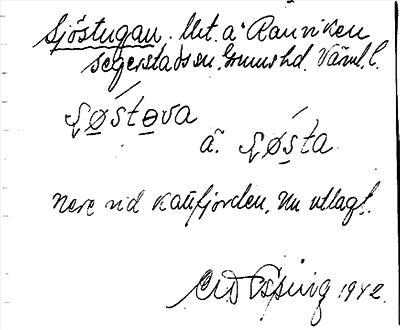 Sjöstugan. Utt. å Ranviken
Segerstads sn. Grums hd. Värml. l.
sǿstova
å. sǿsta
nere vid Kattfjorden, nu utlagt.
1942.